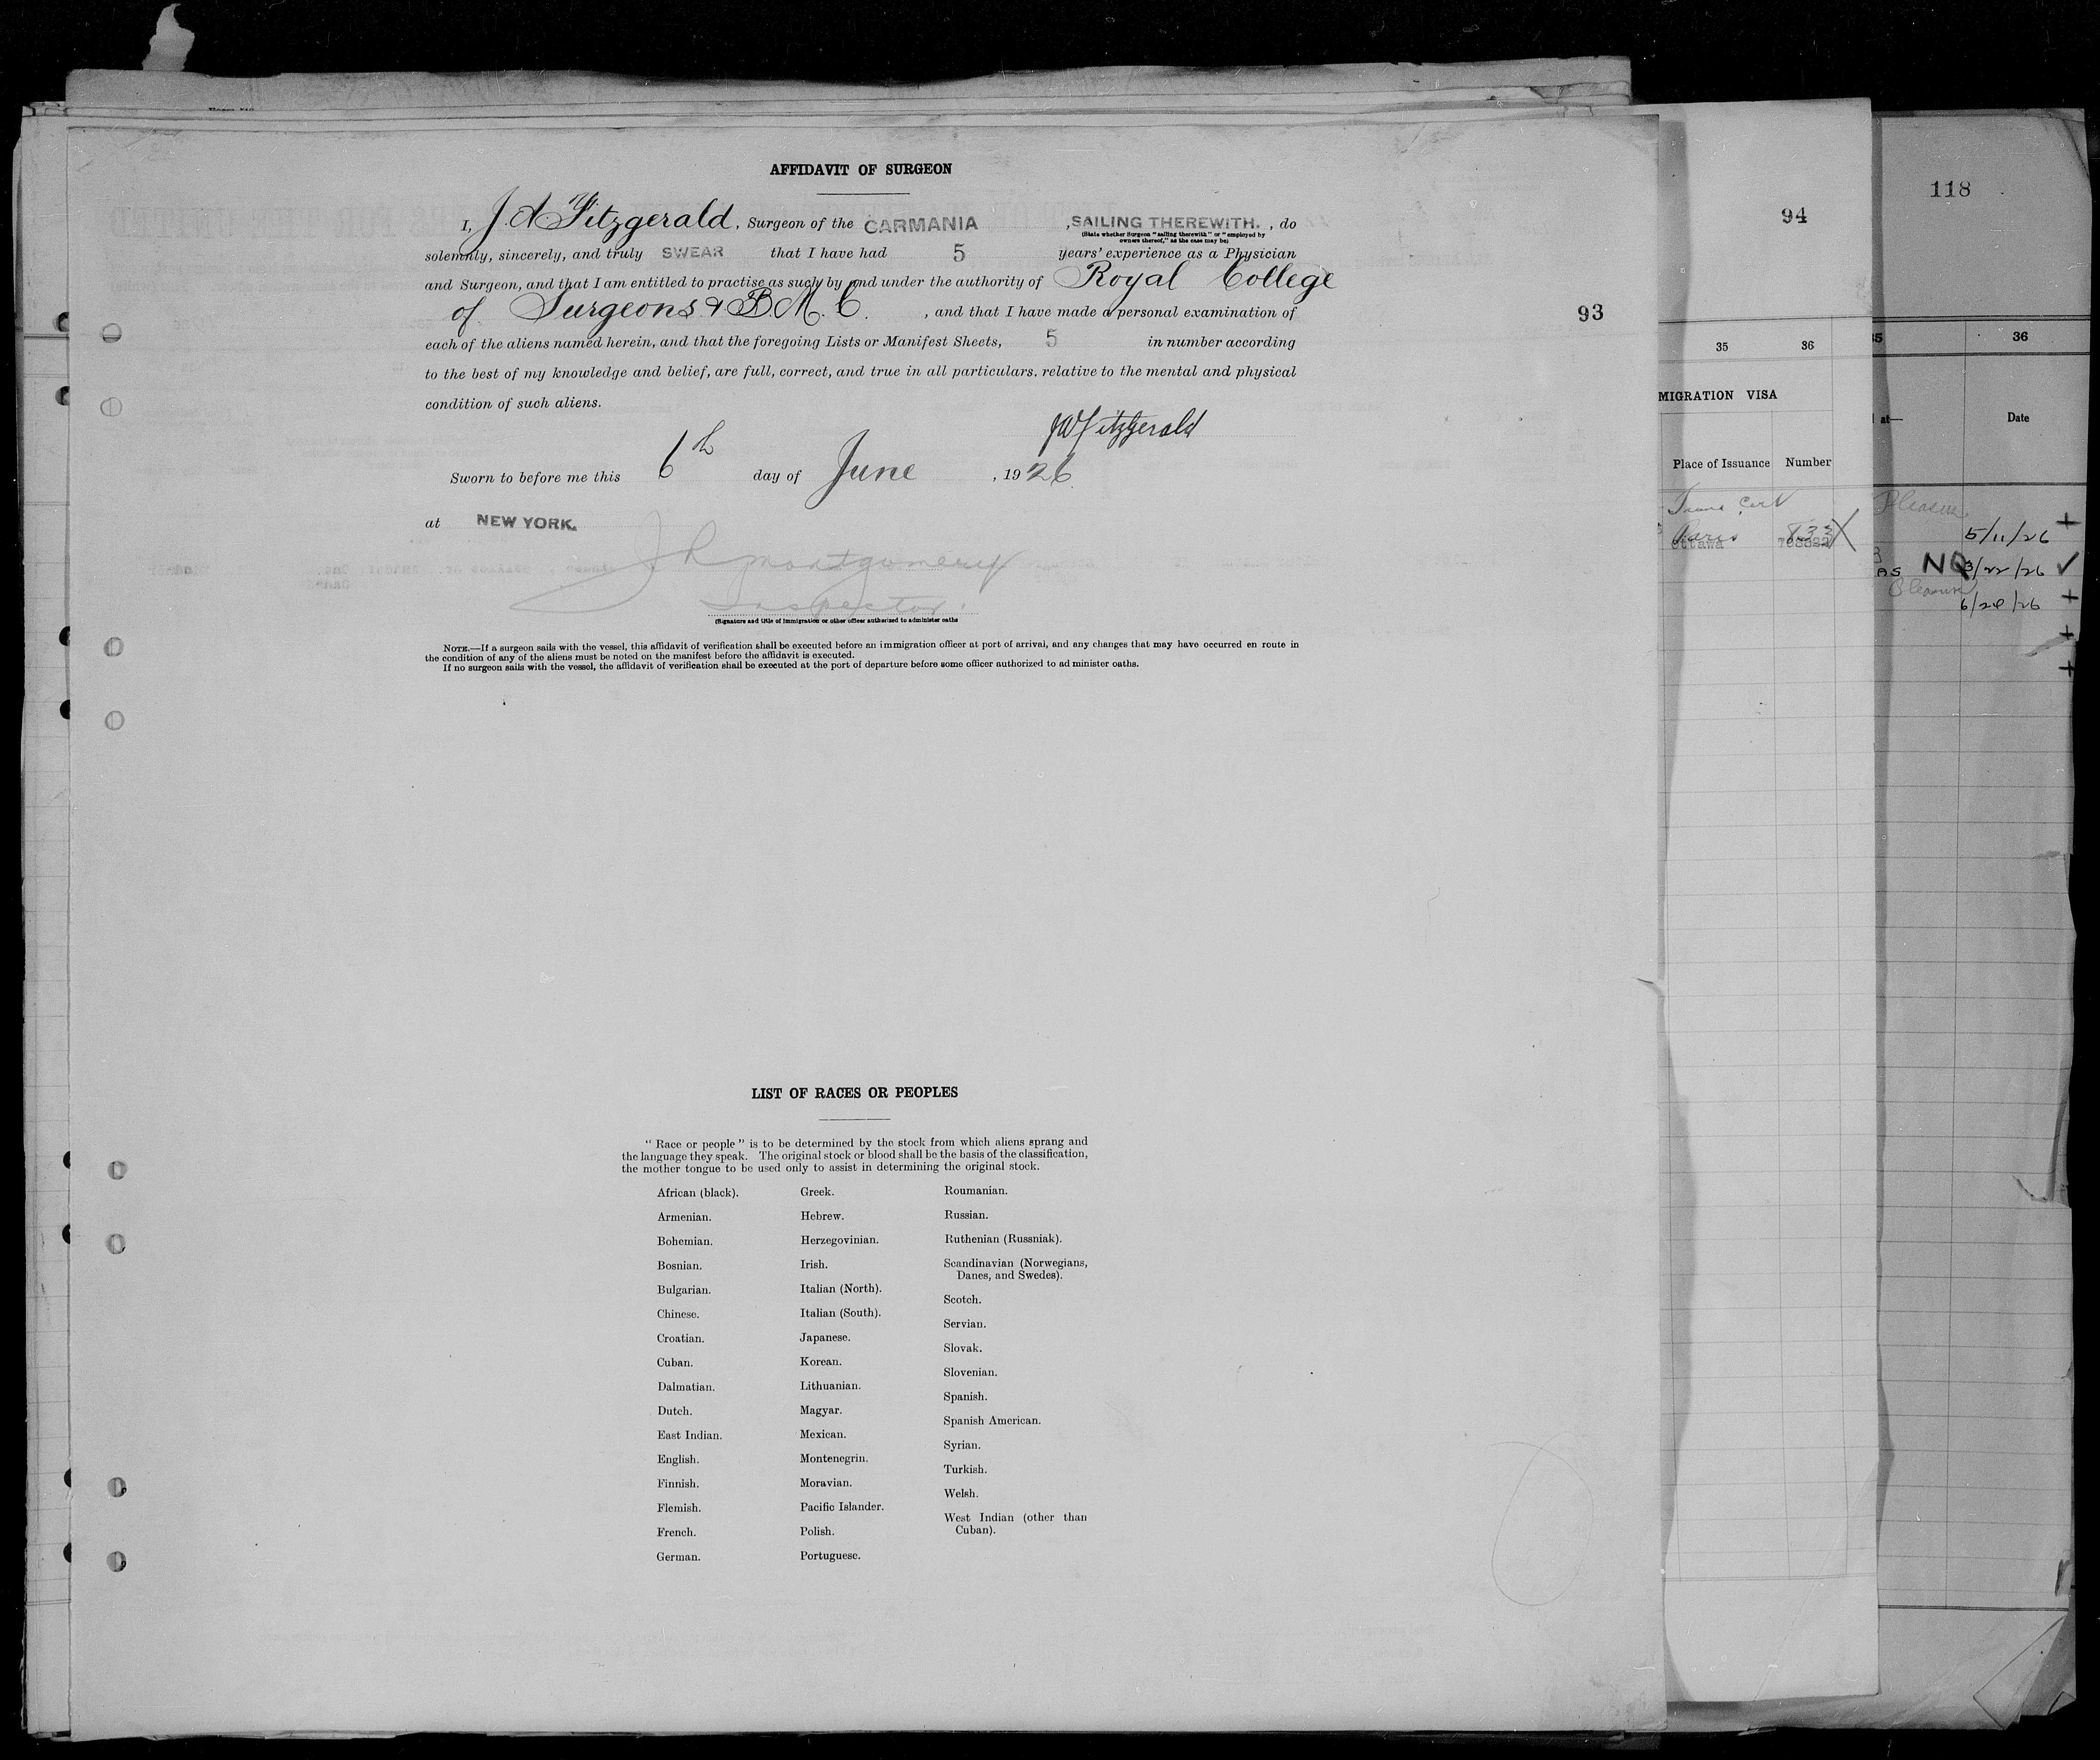 AFFIDAVIT OF SURGEON
I, J. A. Fitzgerald, Surgeon of the CARMANIA , SAILING THEREWITH. , do
(State whether Surgeon "sailing therewith" or "employed by
owners thereof," as the case may be)
solemnly, sincerely, and truly SWEAR that I have had 5 years' experience as a Physician
and Surgeon, and that I am entitled to practise as such by and under the authority of Royal College
of Surgeons & B.M.C. , and that I have made a personal examination of
each of the aliens named herein, and that the foregoing Lists or Manifest Sheets, 5 in number according
to the best of my knowledge and belief, are full, correct, and true in all particulars, relative to the mental and physical
condition of such aliens.
Fitzgerald
Sworn to before me this 6th day of June , 1926
at NEW YORK.
Montgomery
Inspector.
(Signature and title of immigration or other officer authorized to administer oaths
NOTE.—If a surgeon sails with the vessel, this affidavit of verification shall be executed before an immigration officer at port of arrival, and any changes that may have occurred en route in
the condition of any of the aliens must be noted on the manifest before the affidavit is executed.
If no surgeon sails with the vessel, the affidavit of verification shall be executed at the port of departure before some officer authorized to ad minister oaths.
93
LIST OF RACES OR PEOPLES
"Race or people" is to be determined by the stock from which aliens sprang and
the language they speak. The original stock or blood shall be the basis of the classification,
the mother tongue to be used only to assist in determining the original stock.
African (black).
Armenian.
Bohemian.
Bosnian.
Bulgarian.
Chinese.
Croatian.
Cuban.
Dalmatian.
Dutch.
East Indian.
English.
Finnish.
Flemish.
French.
German.
Greek.
Hebrew.
Herzegovinian.
Irish.
Italian (North).
Italian (South).
Japanese.
Korean.
Lithuanian.
Magyar.
Mexican.
Montenegrin.
Moravian.
Pacific Islander.
Polish.
Portuguese.
Roumanian.
Russian.
Ruthenian (Russniak).
Scandinavian (Norwegians,
Danes, and Swedes).
Scotch.
Servian.
Slovak.
Slovenian.
Spanish.
Spanish American.
Syrian.
Turkish.
Welsh.
West Indian (other than
Cuban).
94
35 36
MIGRATION VISA
Place of Issuance Number
Paris
Ottawa
118
35 36
at— Date
Pleasure
5/11/26 +
AS NO 3/22/26 ✓
Pleasure
6/24/26 +
+
+